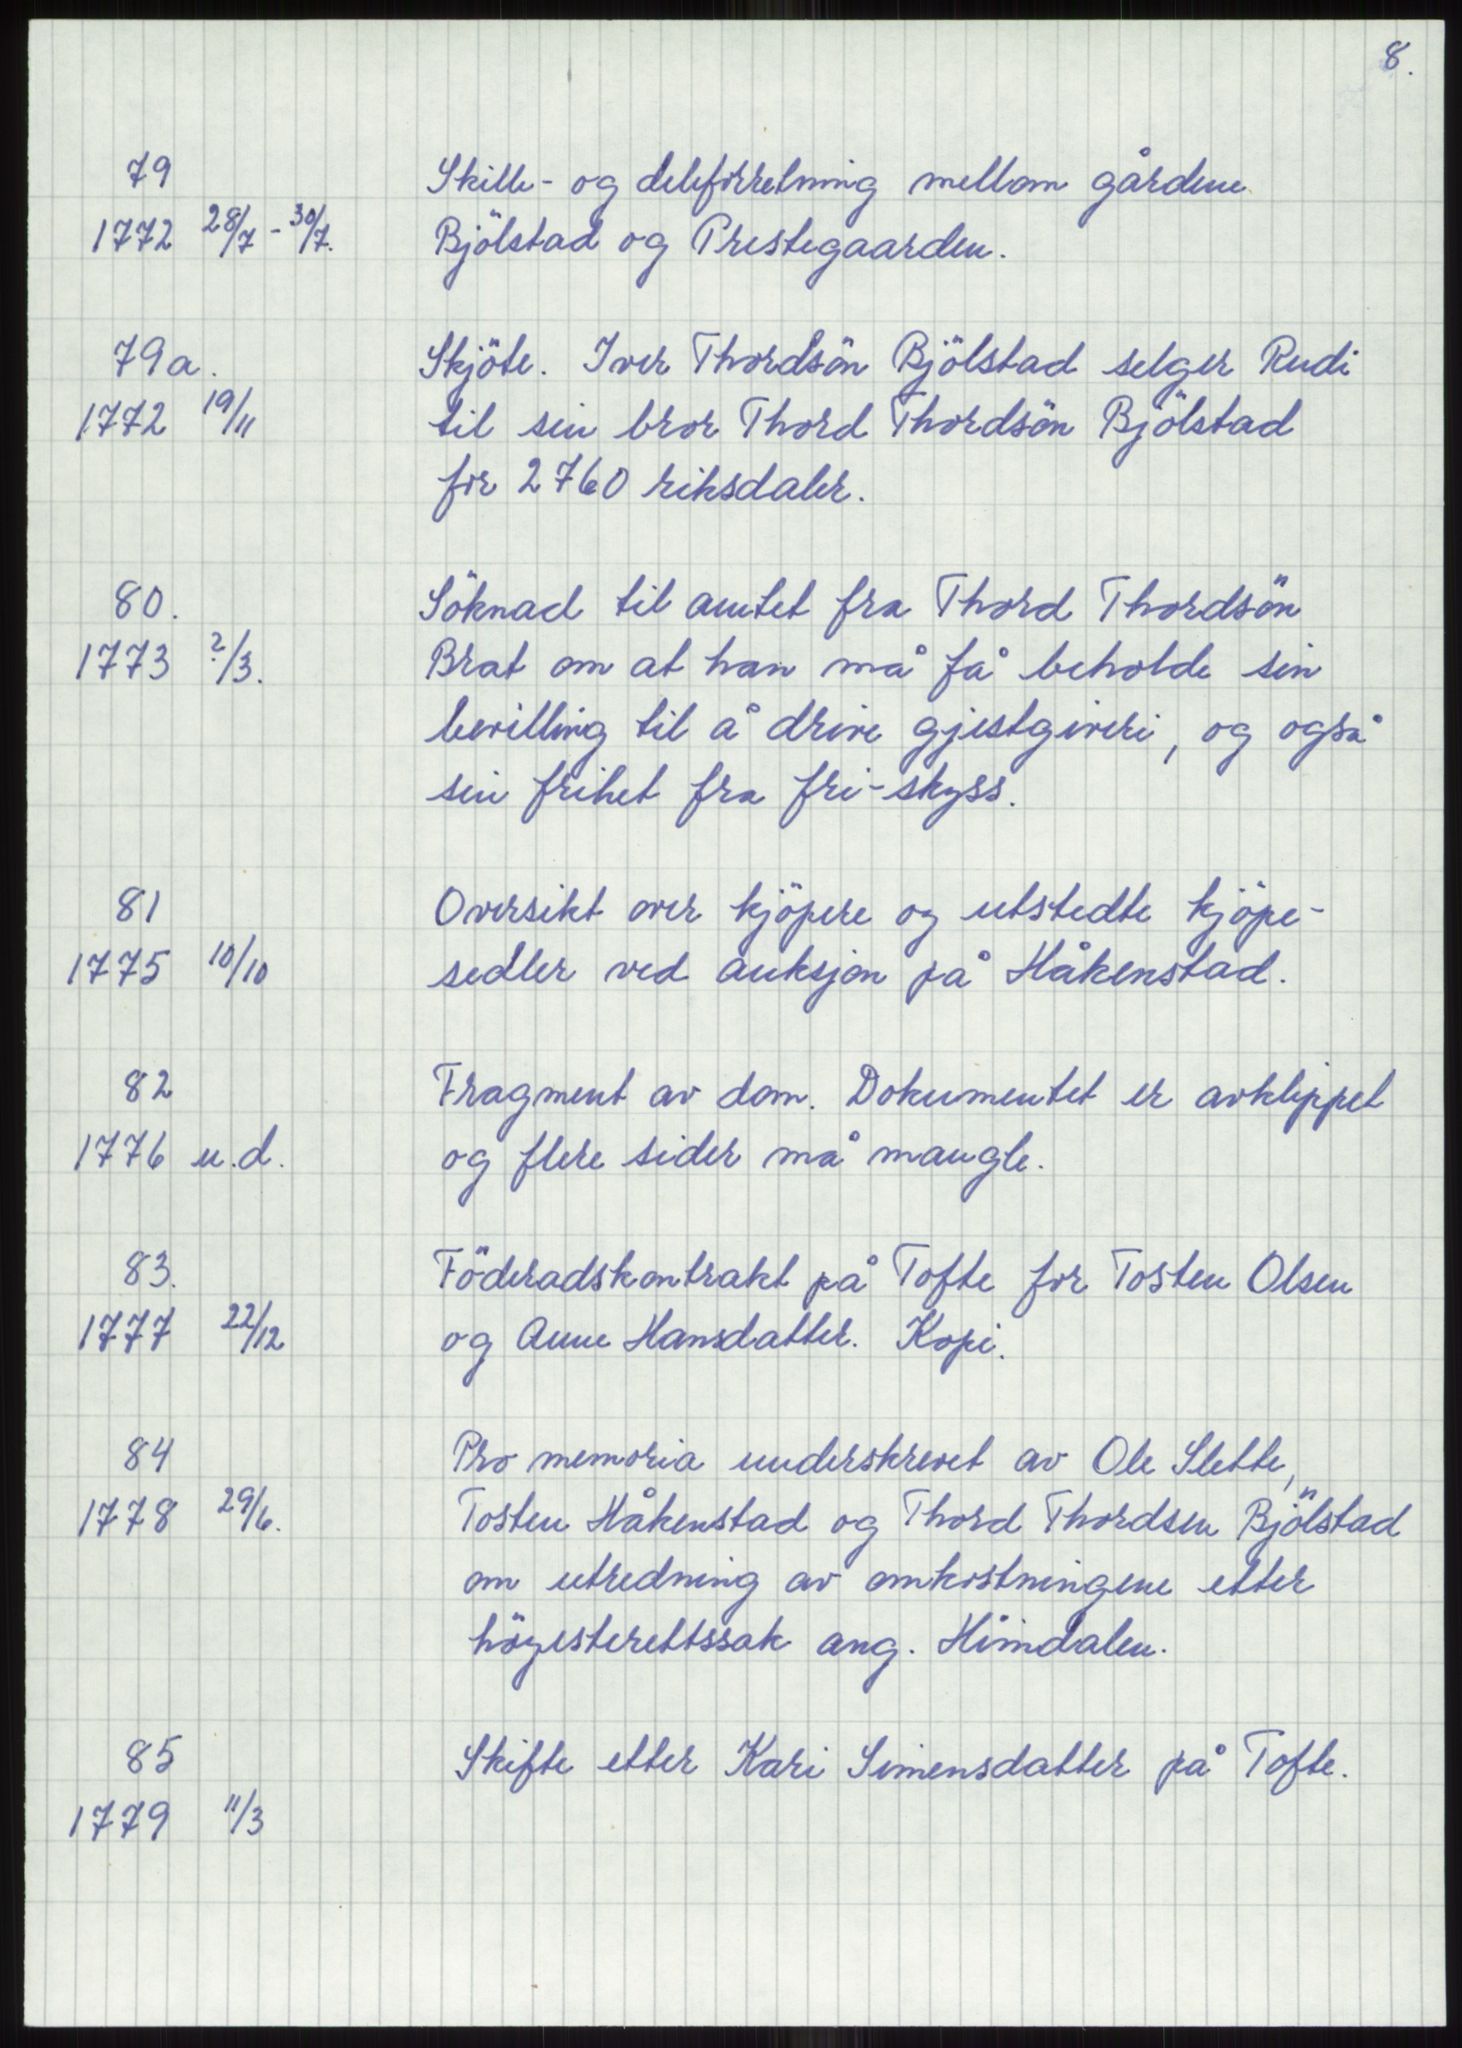 8.
79 Skille- og deleforretning mellom gårdene
1772 28/7 - 30/7. Bjölstad og Prestegaarden.
79a. Skjöte. Iver Thordsön Bjölstad selger Rudi
1772 19/11 til sin bror Thord Thordsön Bjölstad
for 2760 riksdaler.
80. Söknad til amtet fra Thord Thordsön
1773 ?/3. Brat om at han må få beholde sin
bevilling til å drive gjestgiveri, og også
sin frihet fra fri-skyss.
81 Oversikt over kjöpere og utstedte kjöpe-
1775 10/10 sedler ved auksjon på Håkenstad.
82 Fragment av dom. Dokumentet er avklippet
1776 u.d. og flere sider må mangle.
83. Föderadskontrakt på Tofte for Tosten Olsen
1777 22/12 og Anne Hansdatter. Kopi.
84 Pro memoria underskrevet av Ole Slette,
1778 29/6. Tosten Håkenstad og Thord Thordsen Bjölstad
om utredning av omkostningene etter
höyesterettssak ang. Hömdalen.
85 Skifte etter Kari Simensdatter på Tofte.
1779 11/3